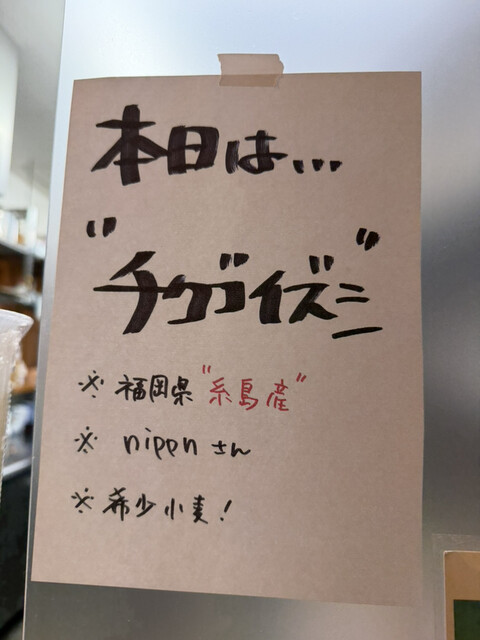 本日は...
"チクゴイズミ"
※ 福岡県 "糸島産"
※ nippn さん
※ 希少小麦!